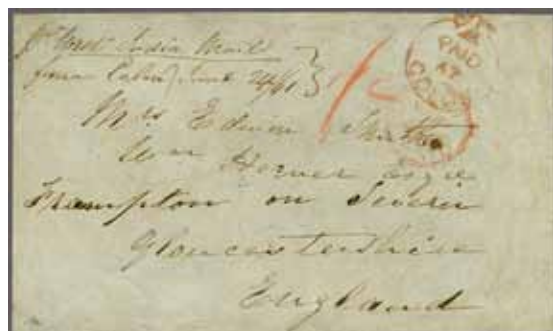 West India Mail
from Colon June 24/61
PAID
Mrs Edwin
Wm Horner Esqre
Frampton on Severn
Gloucestershire
England